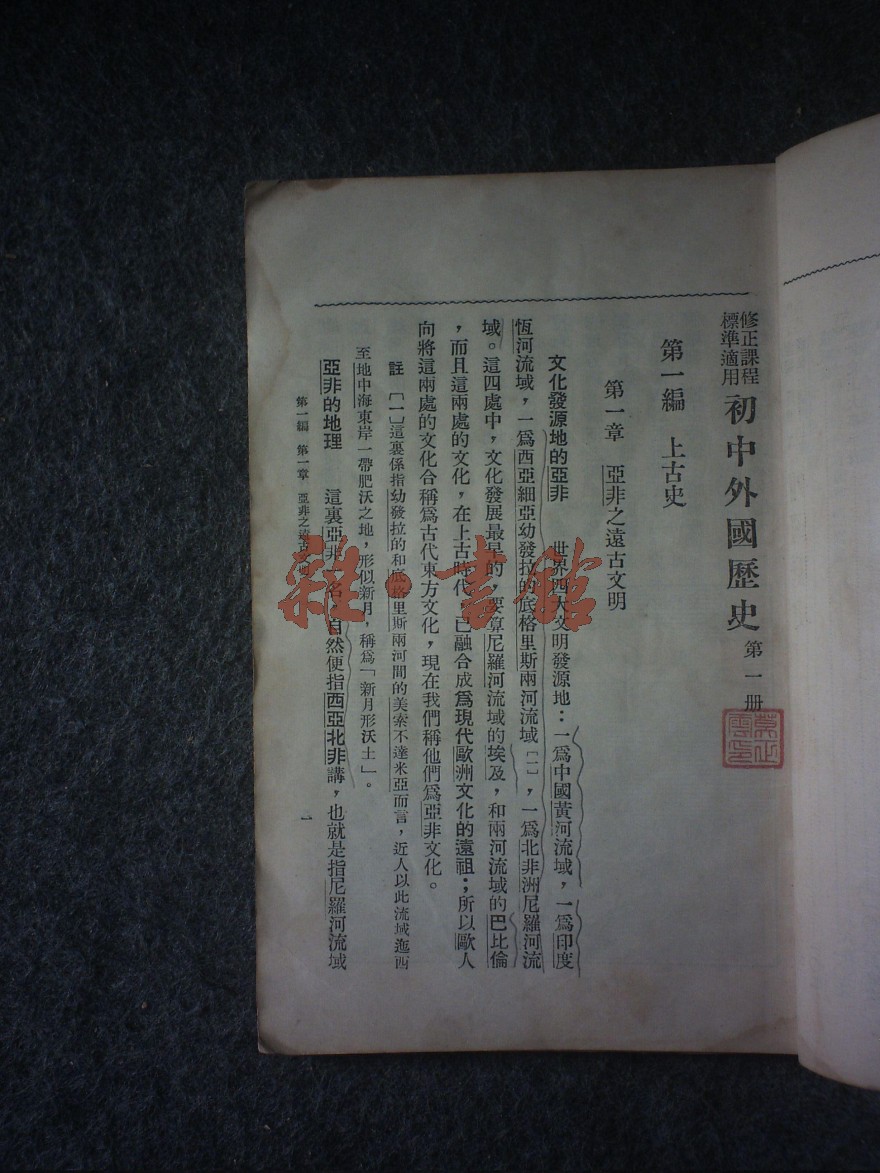 修正課程標準適用 初中外國歷史 第一册
第一編 上古史
第一章 亞非之遠古文明
文化發源地的亞非 世界四大文明發源地：一爲中國黃河流域，一爲印度
恆河流域，一爲西亞細亞幼發拉的底格里斯兩河流域〔一〕，一爲北非洲尼羅河流
域。這四處中，文化發展最早的，要算尼羅河流域的埃及，和兩河流域的巴比倫
，而且這兩處的文化，在上古時代，已融合成爲現代歐洲文化的遠祖；所以歐人
向將這兩處的文化合稱爲古代東方文化，現在我們稱他們爲亞非文化。
註 〔一〕這裏係指幼發拉的和底格里斯兩河間的美索不達米亞而言，近人以此流域迤西
至地中海東岸一帶肥沃之地，形似新月，稱爲「新月形沃土」。
亞非的地理 這裏亞非一名，自然便指西亞北非講，也就是指尼羅河流域
第一編 第一章 亞非之遠古文明 一
雜·書館